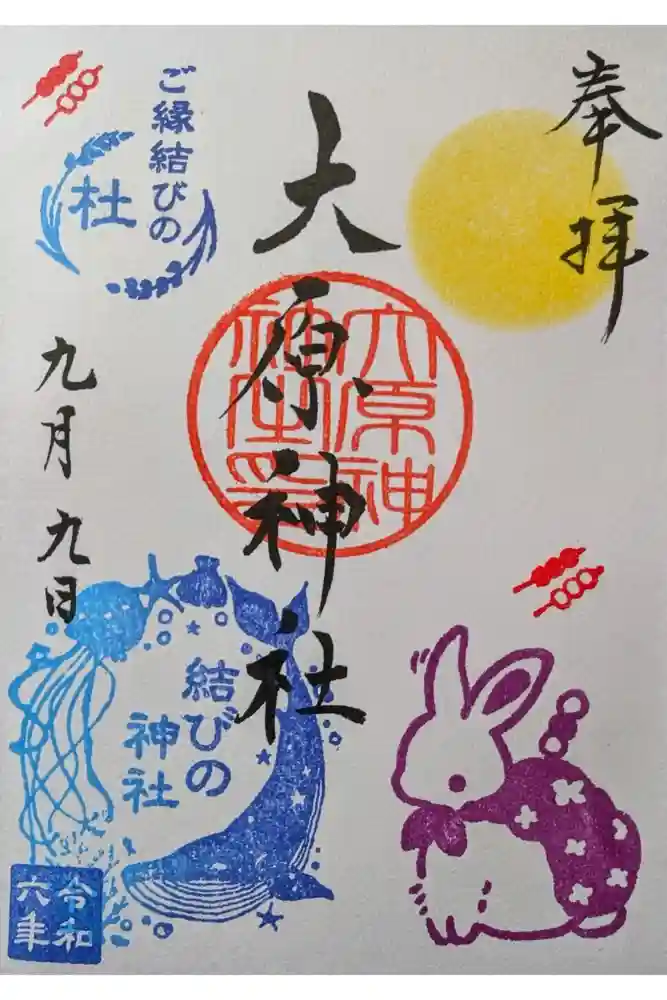 奉拝
大原神社
大原神社之印
ご縁結びの
杜
九月九日
結びの
神社
令和
六年